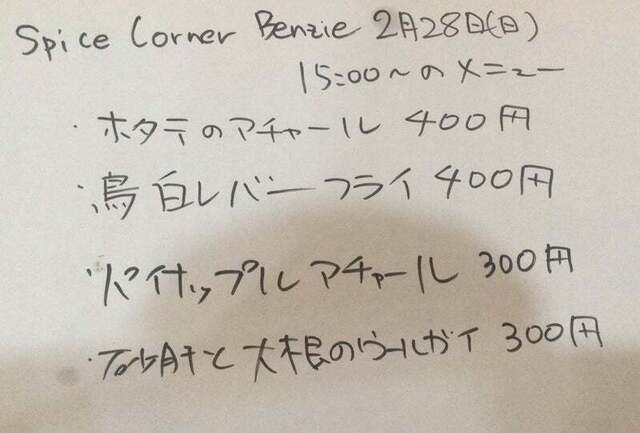 Spice Corner Benzie 2月28日(日)
15:00〜のメニュー
・ホタテのアチャール 400円
・鳥白レバーフライ 400円
・パイナップルアチャール 300円
・と大根のウールガイ 300円